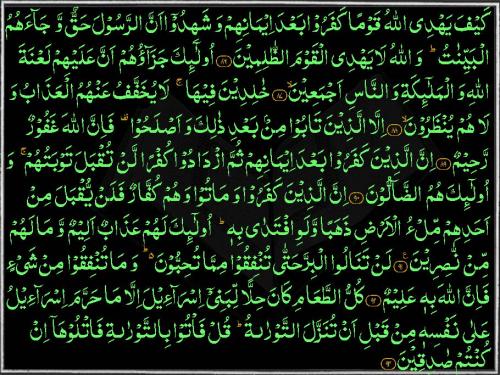 كَيْفَ يَهْدِى اللّٰهُ قَوْمًا كَفَرُوْا بَعْدَ اِيْمَانِهِمْ وَ شَهِدُوْۤا اَنَّ الرَّسُوْلَ حَقٌّ وَّ جَآءَهُمُ
الْبَيِّنٰتُ ؕ وَ اللّٰهُ لَا يَهْدِى الْقَوْمَ الظّٰلِمِيْنَ ﴿۸۶﴾ اُولٰٓئِكَ جَزَآؤُهُمْ اَنَّ عَلَيْهِمْ لَعْنَةَ
اللّٰهِ وَ الْمَلٰٓئِكَةِ وَ النَّاسِ اَجْمَعِيْنَ ﴿ۙ۸۷﴾ خٰلِدِيْنَ فِيْهَا ۚ لَا يُخَفَّفُ عَنْهُمُ الْعَذَابُ وَ
لَا هُمْ يُنْظَرُوْنَ ﴿ۙ۸۸﴾ اِلَّا الَّذِيْنَ تَابُوْا مِنْۢ بَعْدِ ذٰلِكَ وَ اَصْلَحُوْا ۟ فَاِنَّ اللّٰهَ غَفُوْرٌ
رَّحِيْمٌ ﴿۸۹﴾ اِنَّ الَّذِيْنَ كَفَرُوْا بَعْدَ اِيْمَانِهِمْ ثُمَّ ازْدَادُوْا كُفْرًا لَّنْ تُقْبَلَ تَوْبَتُهُمْ ۚ وَ
اُولٰٓئِكَ هُمُ الضَّآلُّوْنَ ﴿۹۰﴾ اِنَّ الَّذِيْنَ كَفَرُوْا وَ مَاتُوْا وَ هُمْ كُفَّارٌ فَلَنْ يُّقْبَلَ مِنْ
اَحَدِهِمْ مِّلْءُ الْاَرْضِ ذَهَبًا وَّ لَوِ افْتَدٰى بِهٖ ؕ اُولٰٓئِكَ لَهُمْ عَذَابٌ اَلِيْمٌ وَّ مَا لَهُمْ
مِّنْ نّٰصِرِيْنَ ﴿۹۱﴾ لَنْ تَنَالُوا الْبِرَّ حَتّٰى تُنْفِقُوْا مِمَّا تُحِبُّوْنَ ۬ؕ وَ مَا تُنْفِقُوْا مِنْ شَىْءٍ
فَاِنَّ اللّٰهَ بِهٖ عَلِيْمٌ ﴿۹۲﴾ كُلُّ الطَّعَامِ كَانَ حِلًّا لِّبَنِىْۤ اِسْرَآءِيْلَ اِلَّا مَا حَرَّمَ اِسْرَآءِيْلُ
عَلٰى نَفْسِهٖ مِنْ قَبْلِ اَنْ تُنَزَّلَ التَّوْرٰىةُ ؕ قُلْ فَاْتُوْا بِالتَّوْرٰىةِ فَاتْلُوْهَاۤ اِنْ
كُنْتُمْ صٰدِقِيْنَ ﴿۹۳﴾